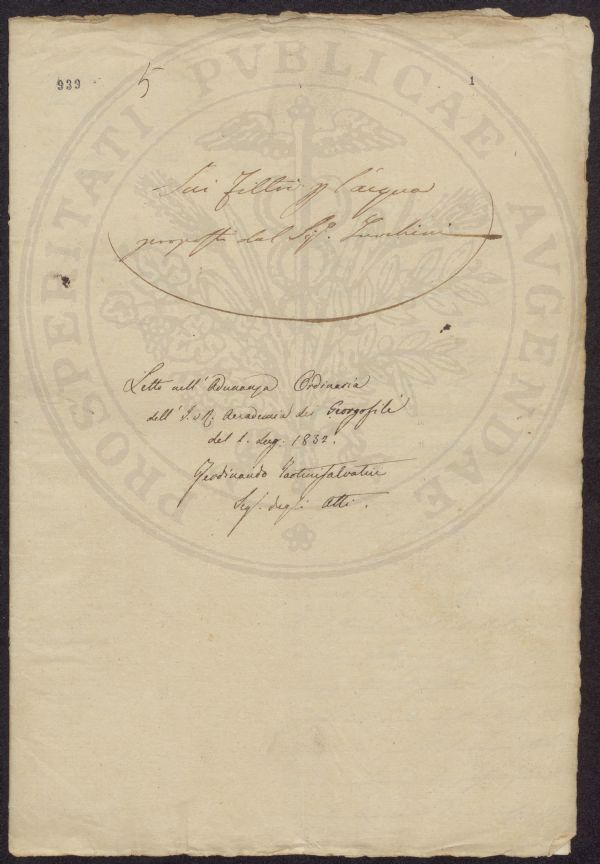 939
5
1
PROSPERITATI PVBLICAE AVGENDAE
Sui Filtri p l'acqua
proposti dal Sigr.
Letto nell'Adunanza Ordinaria
dell'I. e R. Accademia dei Georgofili
del 1. Lug. 1832.
Ferdinando Tartini Salvatici
Segr. degli Atti.